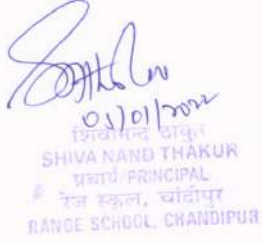 01/01/2022
शिवानन्द ठाकुर
SHIVA NAND THAKUR
प्राचार्य/PRINCIPAL
रेंज स्कूल, चांदीपुर
RANGE SCHOOL, CHANDIPUR